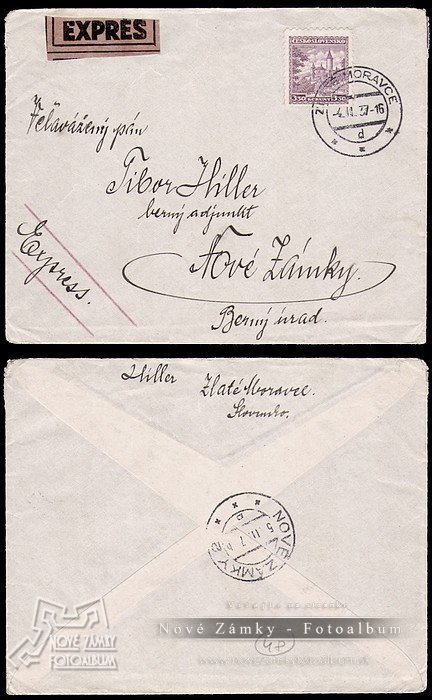 EXPRÈS
ČESKOSLOVENSKO
3·50 3·50
ZLATÉ MORAVCE
-4.II.37-16
d
Veľavážený pán
Tibor Hiller
berný adjunkt
Express.
Nové Zámky.
Berný úrad.
Hiller Zlaté Moravce.
Slovensko.
NOVÉ ZÁMKY
5.II.37
NOVÉ ZÁMKY
FOTOALBUM
Nové Zámky - Fotoalbum